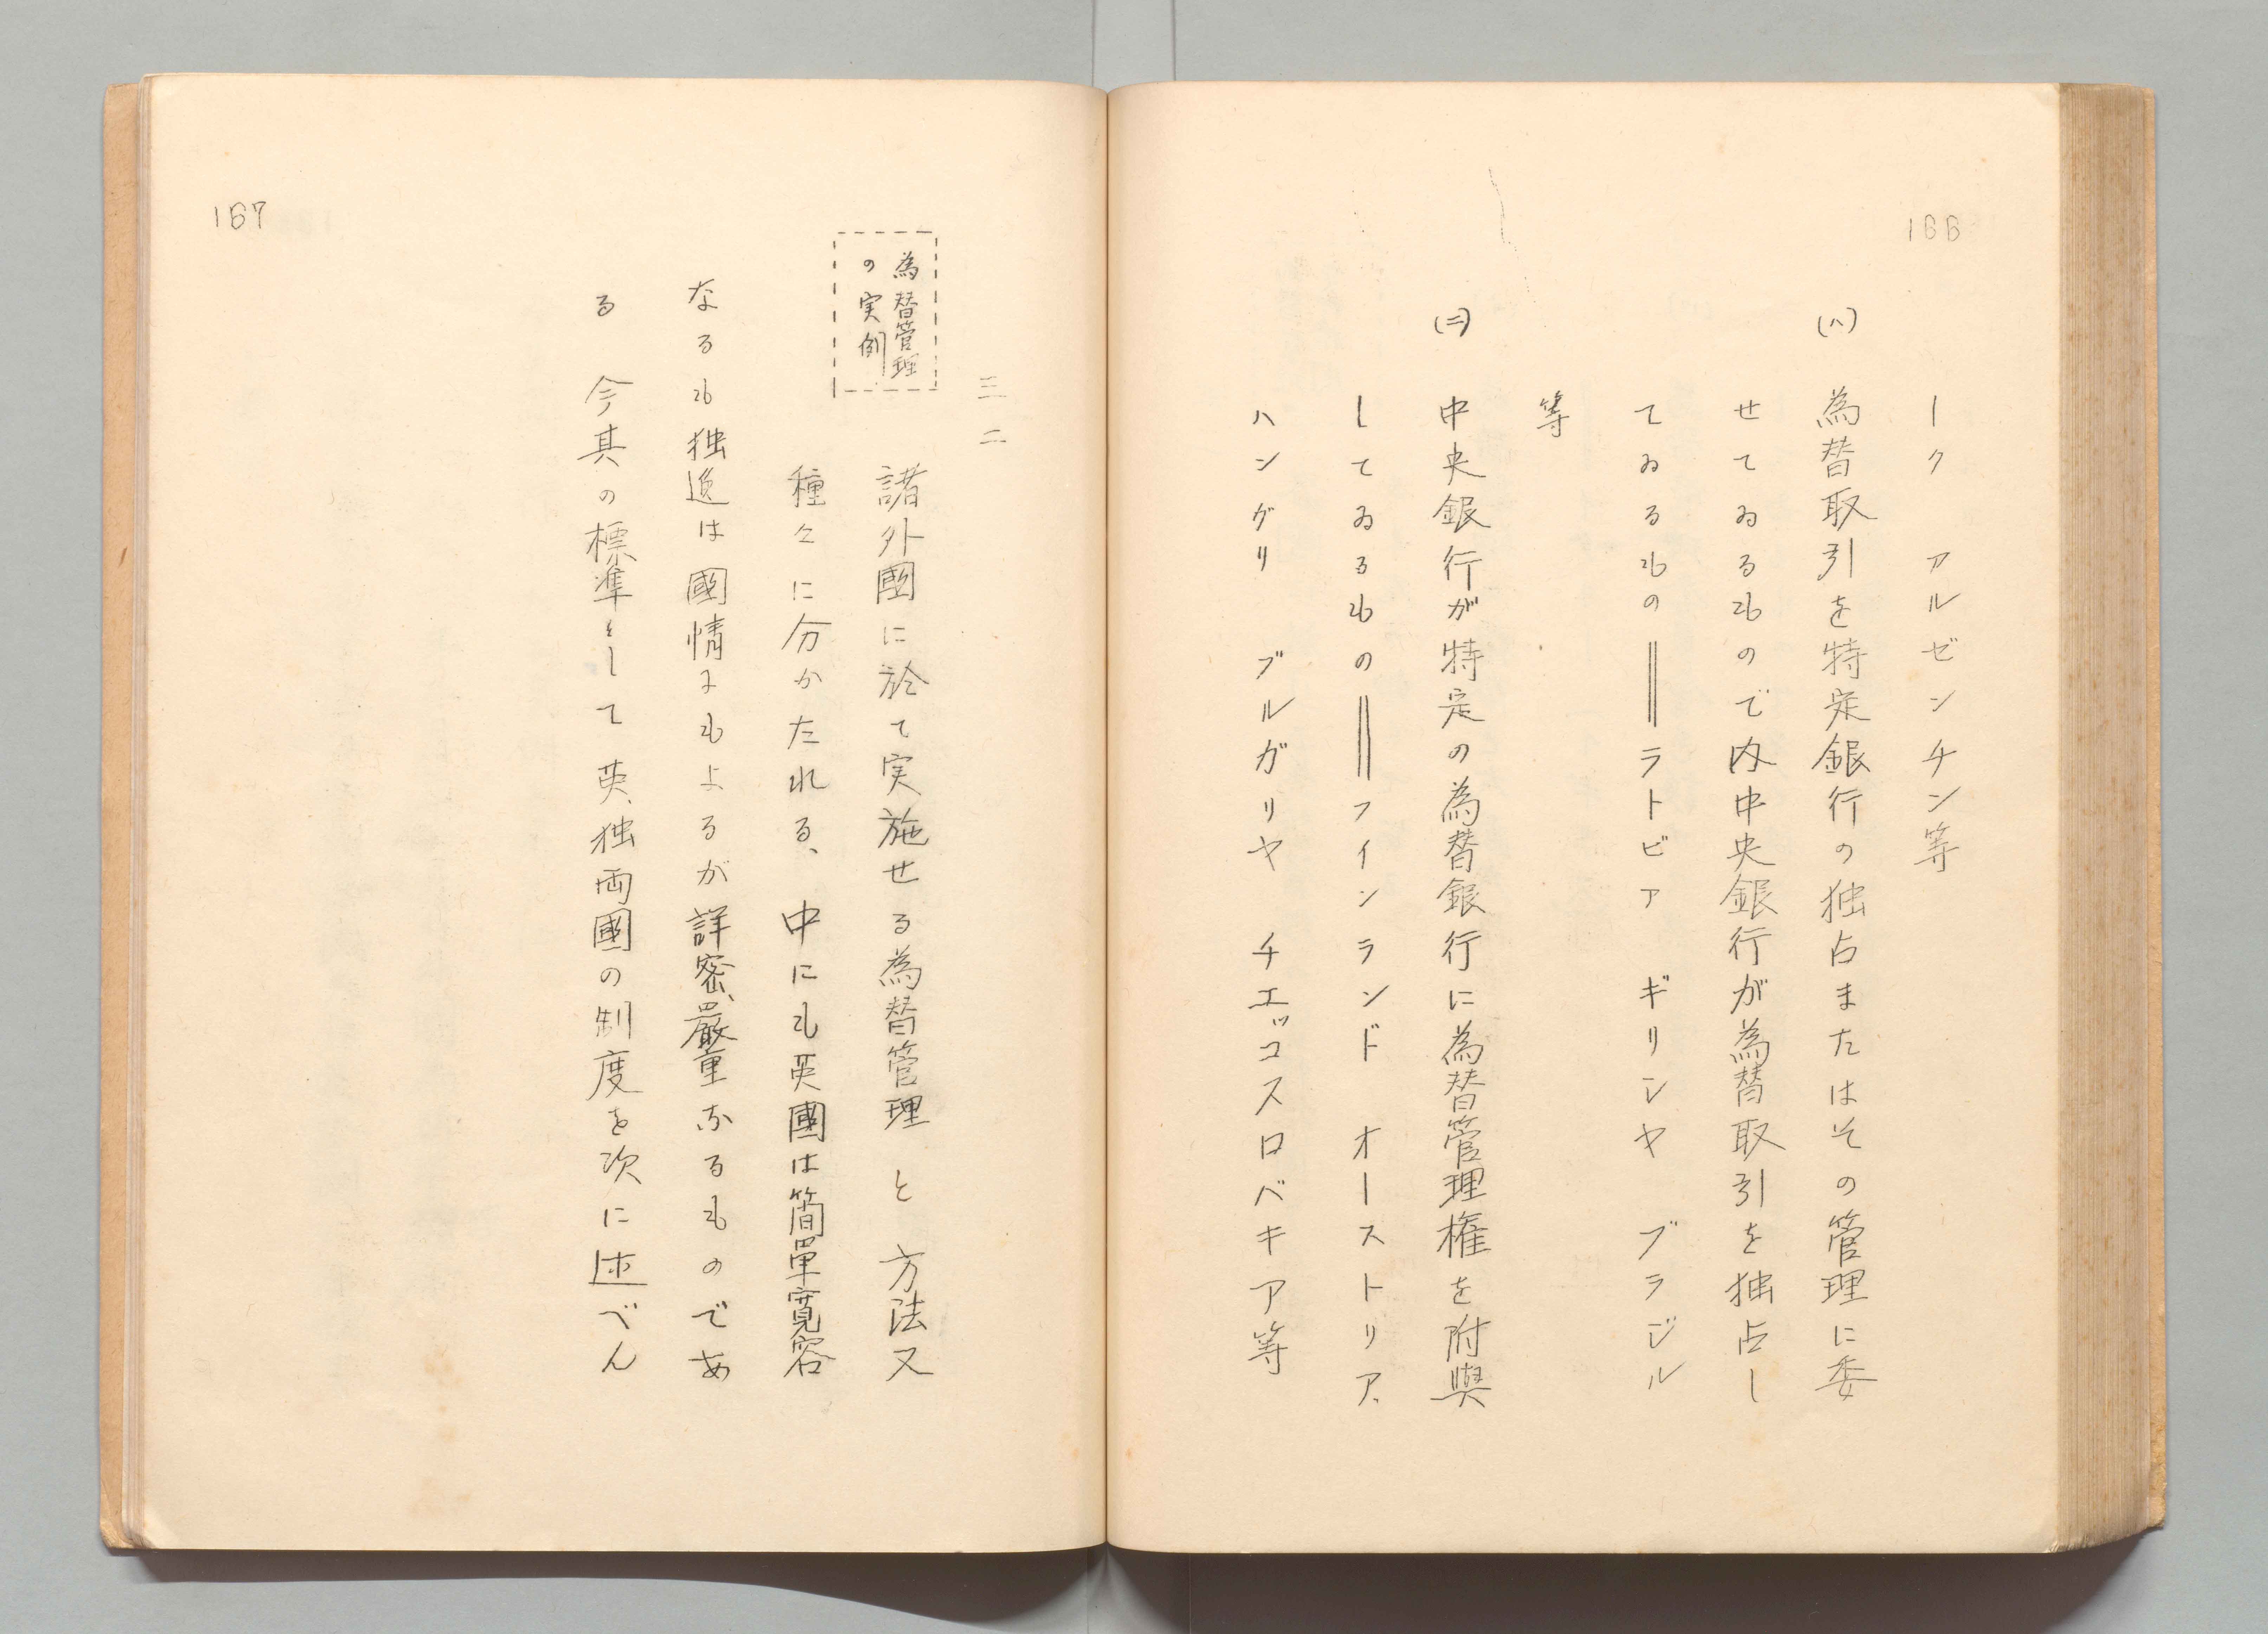 166
ーク アルゼンチン等
(ハ) 為替取引を特定銀行の独占またはその管理に委
せてゐるもので内中央銀行が為替取引を独占し
てゐるもの══ラトビア ギリシヤ ブラジル
等
(ニ) 中央銀行が特定の為替銀行に為替管理権を附與
してゐるもの══フインランド オーストリア、
ハンガリ ブルガリヤ チエッコスロバキア等
167
三二
為替管理
の実例
諸外國に於て実施せる為替管理と方法又
種々に分かたれる、中にも英國は簡單寛容
なるも独逸は國情にもよるが詳密、嚴重なるものであ
る 今其の標準として英、独両國の制度を次に述べん